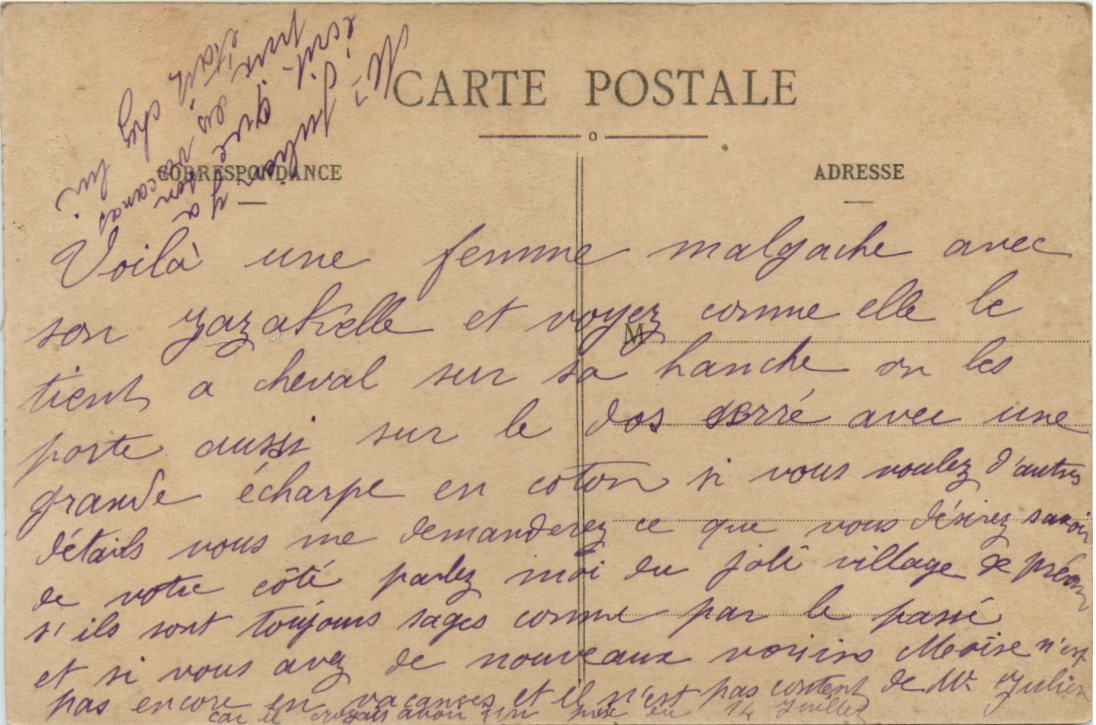 CARTE POSTALE
CORRESPONDANCE
ADRESSE
M
Voilà une femme malgache avec
son zazakelle et voyez comme elle le
tient a cheval sur sa hanche on les
porte aussi sur le dos serré avec une
grande écharpe en coton si vous voulez d'autres
détails vous me demanderez ce que vous désirez savoir
de votre côté parlez moi du joli village de
s'ils sont toujours sages comme par le passé
et si vous avez de nouveaux voisins Moïse n'est
pas encore en vacances et il n'est pas content de Mr Julien
car il avoir son prix au 14 Juillet
Mr
Julien y a
écrit que son
pour les vacances
était chez lui